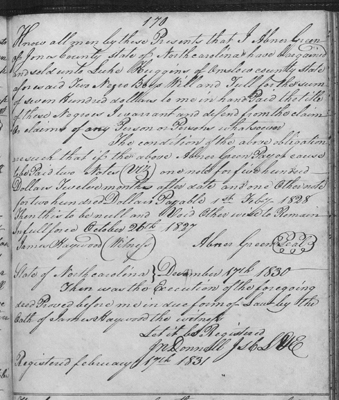 170
Know all men by these Presents that I Abner Green
of Jones County State of North carolina have bargained
and sold unto Luke Huggins of Onslow county State
forewaid Two Negro Boys Will and Tull for the sum
of seven Hundred dollars to me in hand Paid the title
of these Negroes I warrant and defend from the claim
& claims of any Person or Persons whatsoever
The condition of the above obligation
is such that if the above Abner Green Pays or cause
to be Paid two Notes (Viz) one note for five hundred
Dollars Twelve months after date and one Other note
for two hundred Dollars Payable 1st Feby 1828
then this to be null and Void Otherwise to Remain
in full force October 26th 1827
James Haywood (Witness) Abner Green (Seal)
State of North carolina } December 17th 1830
Then was the Execution of the foregoing
deed Proved before me in due form of Law by the
Oath of James Haywood the witness
Let it be Registered
McDonnell
Registered february 17th 1831